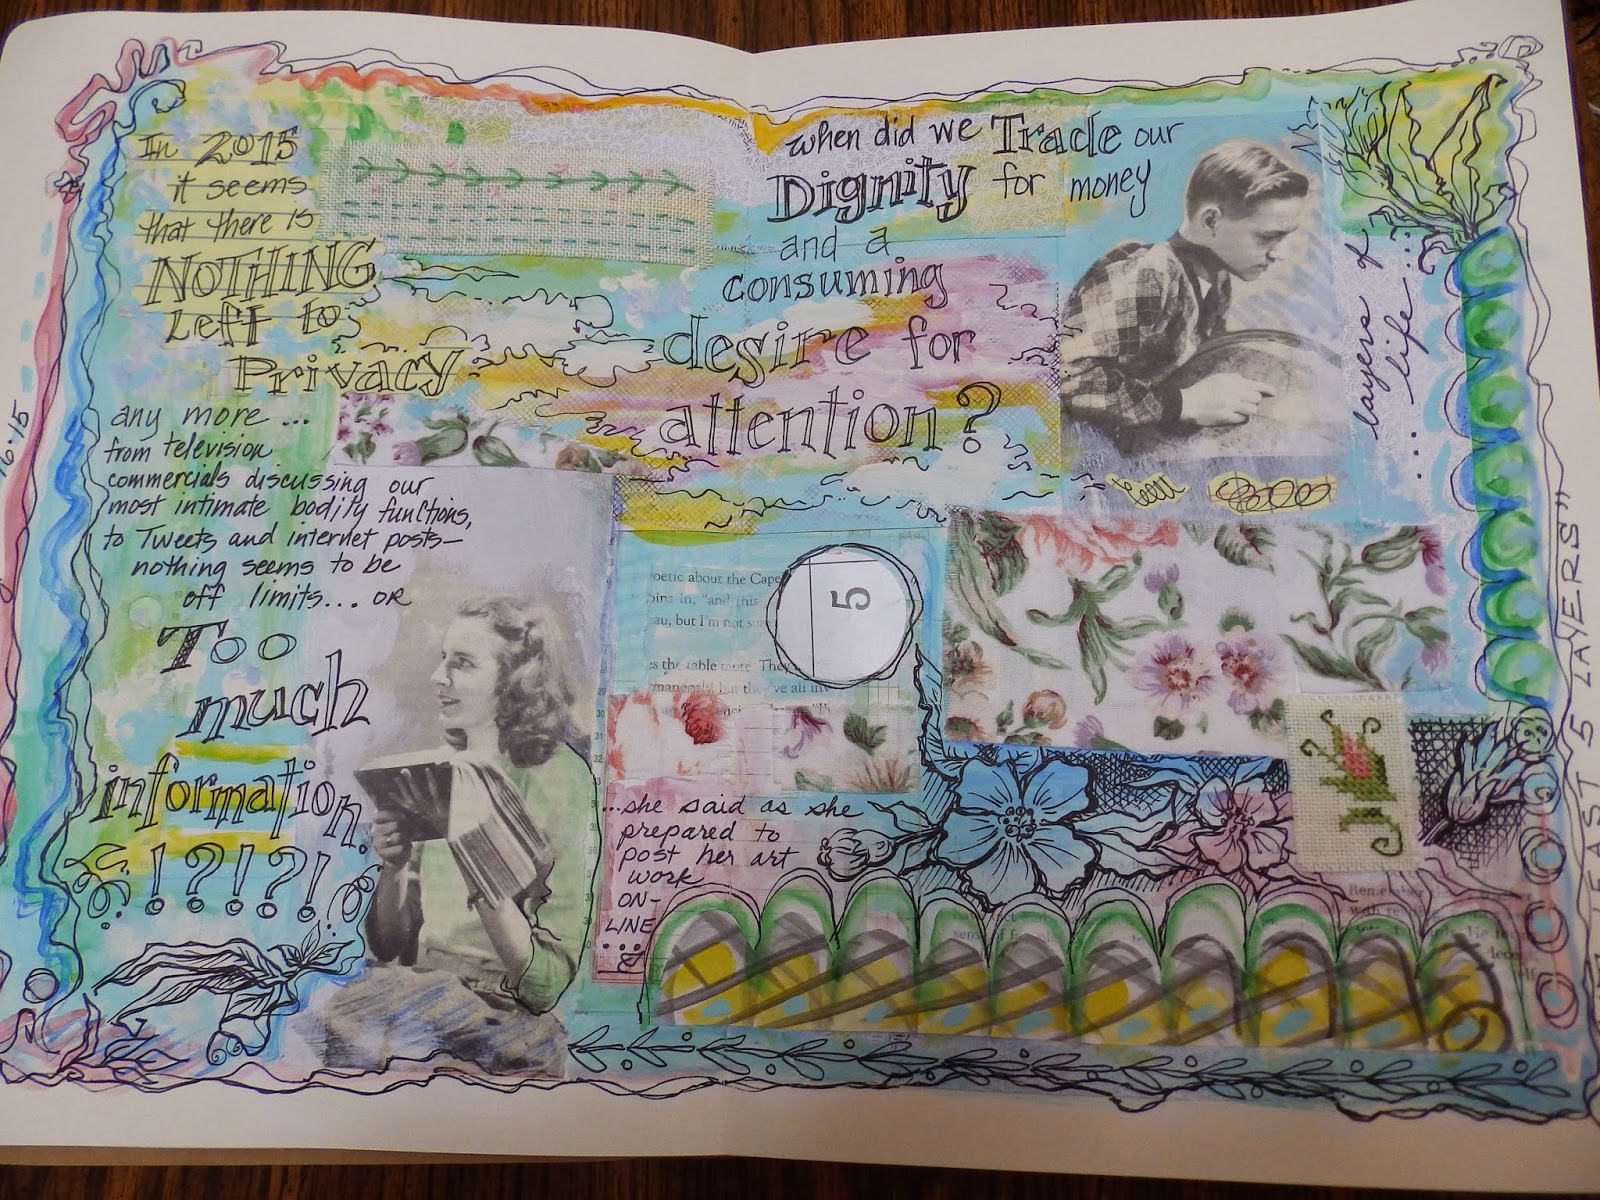 In 2015
it seems
that there is
NOTHING
Left to
Privacy
any more ...
from television
commercials discussing our
most intimate bodily functions,
to Tweets and internet posts—
nothing seems to be
off limits... OR
Too
much
information.
!?!?!
when did we Trade our
Dignity for money
and a
consuming
desire for
attention?
layers of
life...
oetic about the Cape
oins in, "and this
au, but I'm not sure
es the table mute. They
5
...she said as she
prepared to
post her art
work
ON-
LINE
...
EAST 5 LAYERS"